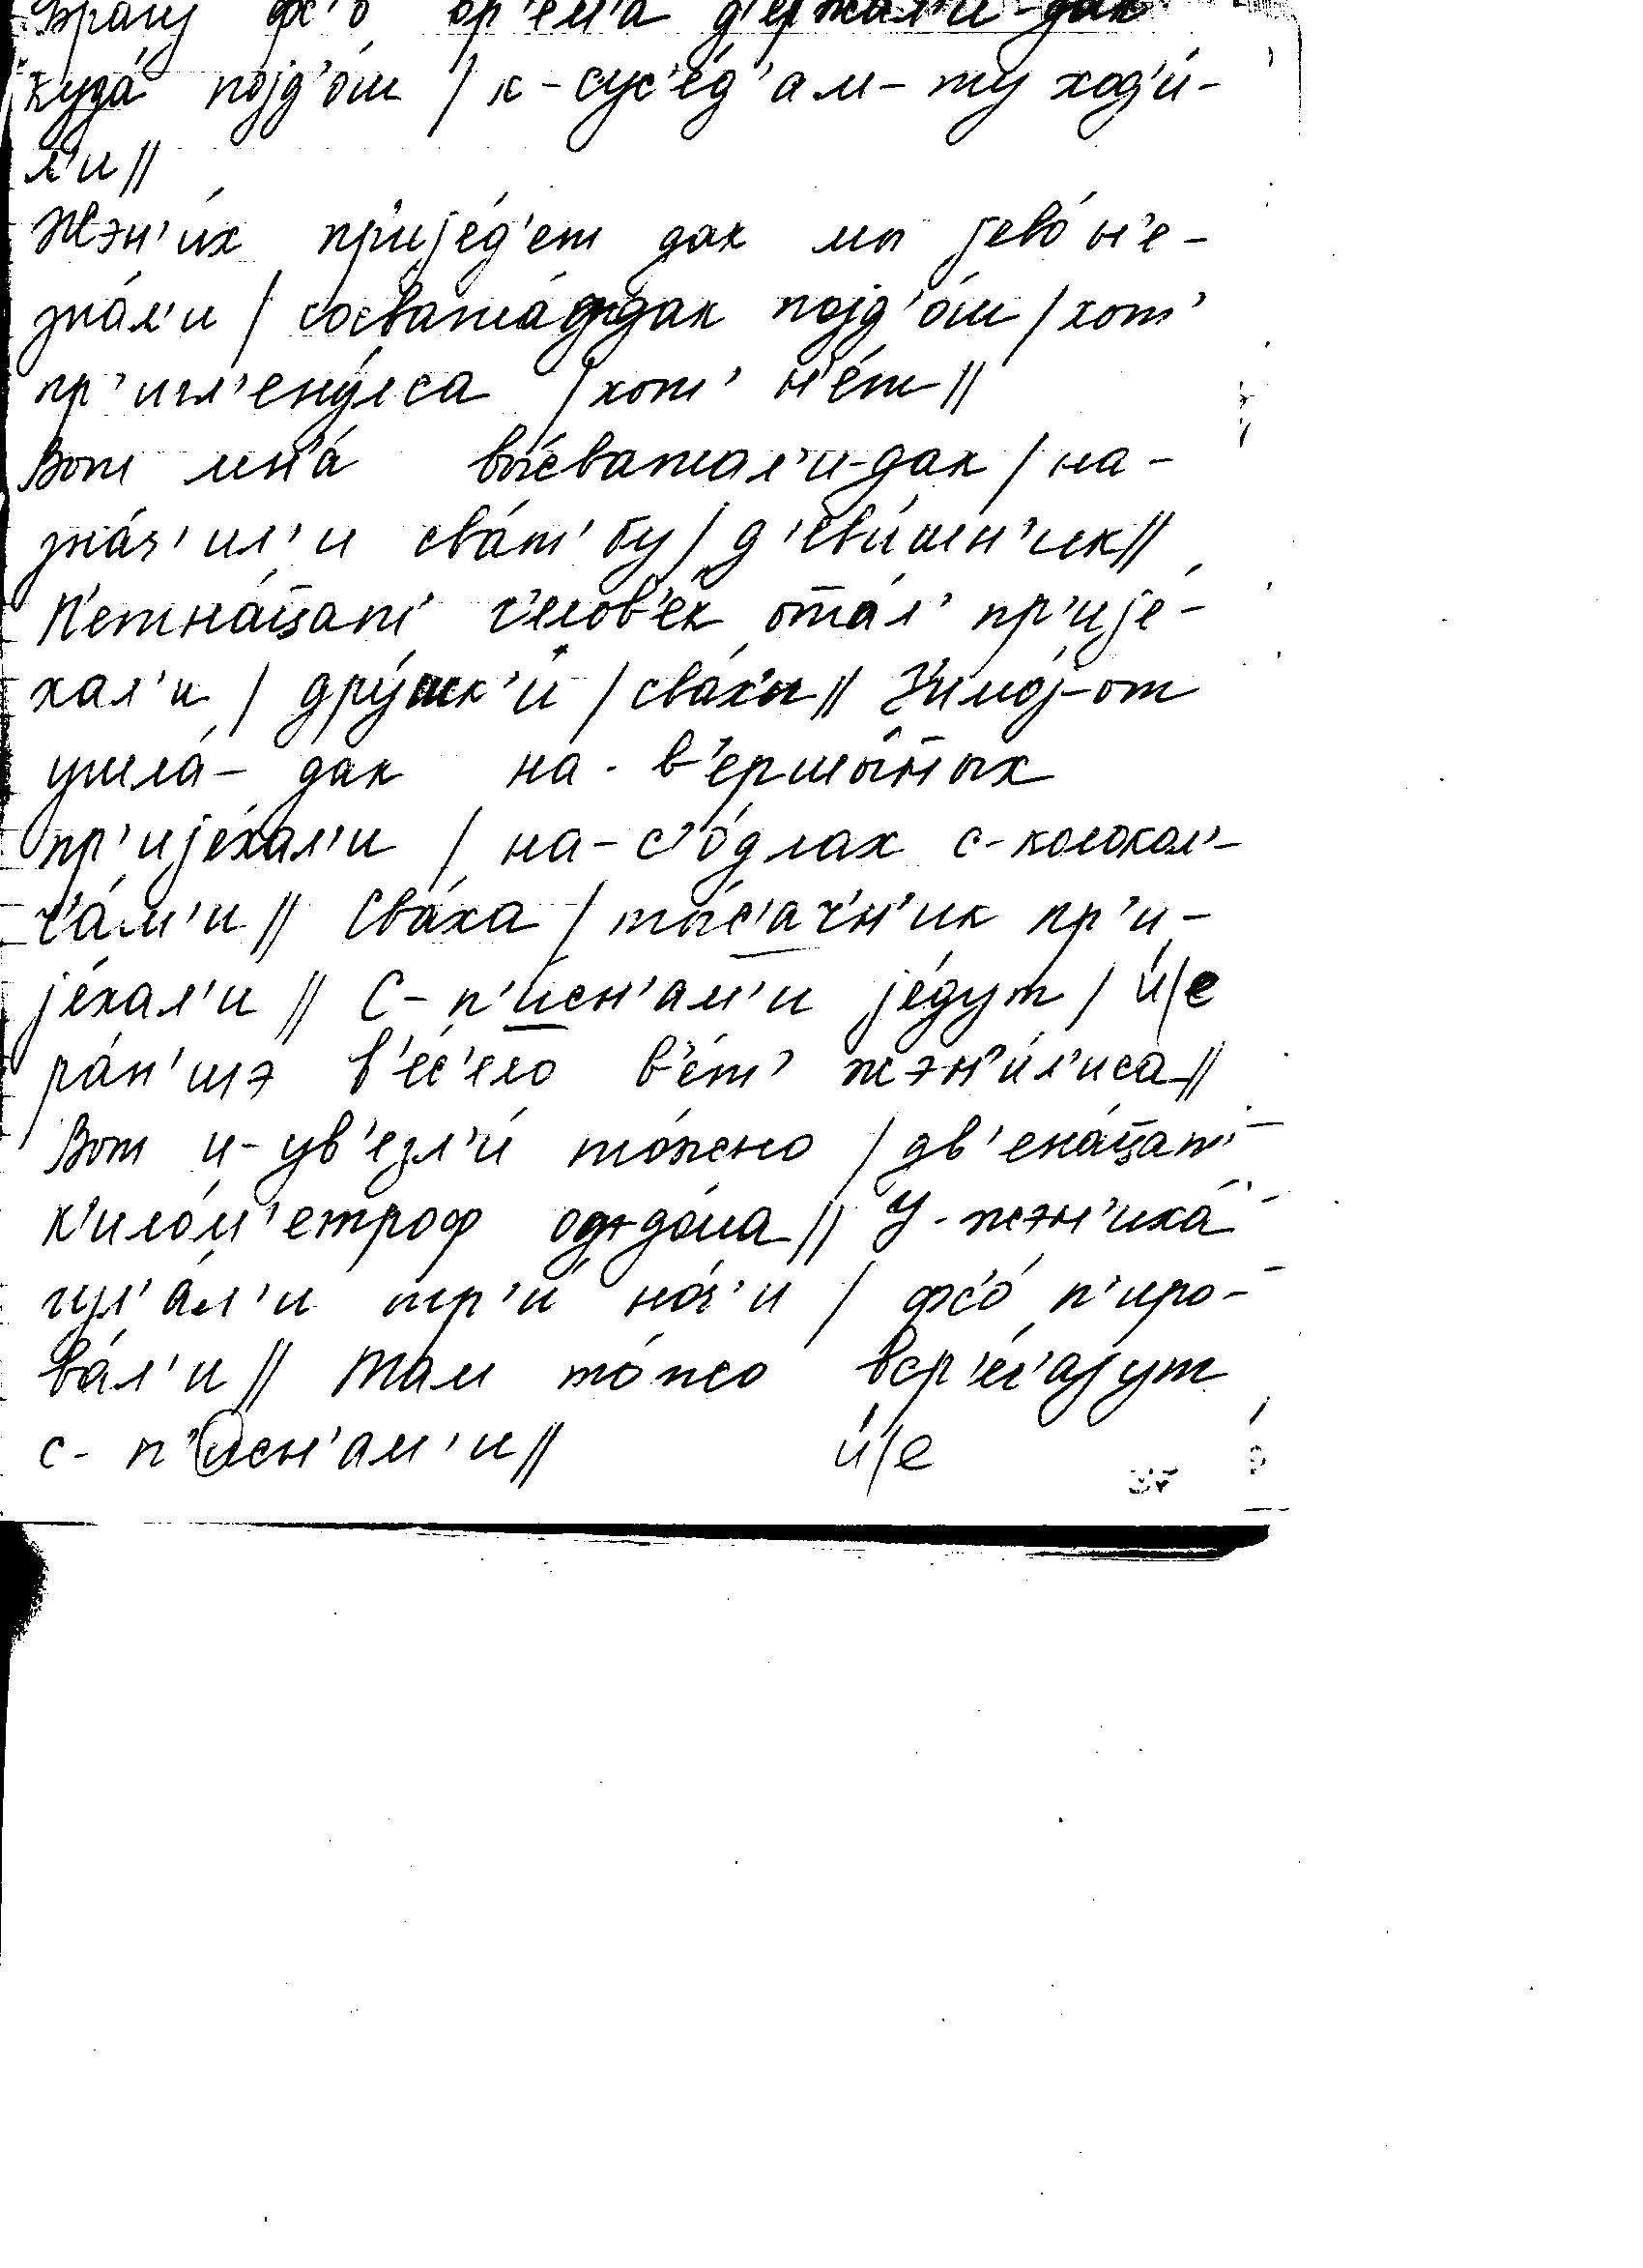 Брагу фс'о вр'ем'а д'ержал'и-дак
куда́ појд'о́ш / к-сус'е́д'ам-ту ход'и́-
л'и //
Жэн'и́х пр'ије́д'ет дак мы јево́ н'е-
зна́л'и / сосвата́ддак појд'о́ш / хот'
пр'игл'ену́лса / хот' н'е́т //
Вот мн'а́ вы́сватал'и-дак / на-
зна́ч'ил'и сва́т'бу / д'еви́шн'ик //
П'етна́ц̄ат' ч'елов'е́к отта́л' пр'ије́-
хал'и / дру́шк'и / сва́х'и // З'имо́ј-от
ушла́-дак на-в'ершы́н̄ых
пр'ије́хал'и / на-с'о́длах с-колокол'-
ч'а́м'и // Сва́ха / ты́с'ач'н'ик пр'и-
је́хал'и // С-п'и́сн'ам'и је́дут / и́/е
ра́н'шэ в'е́с'ело в'е́т' жэн'и́л'иса //
Вот и-ув'езл'и́ то́жно / дв'ена́ц̄ат'
к'ило́м'етроф оддо́ма // У-жэн'иха́
гул'а́л'и тр'и но́ч'и / фс'о́ п'иро-
ва́л'и // Там то́жо вср'еч'ајут
с-п'и́сн'ам'и // и́/е